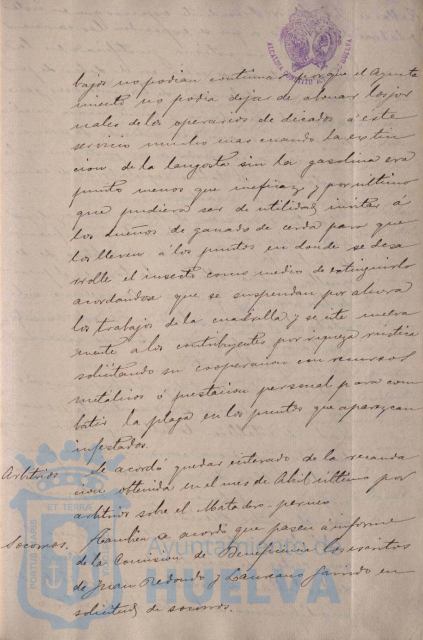 ALCALDIA HUELVA
bajos no podian continuar porque el Ayunta
miento no podia dejar de abonar los jor
nales de los operarios dedicados á este
servicio mucho mas cuando la extin
cion de la langosta sin la gasolina era
punto menos que ineficaz y por ultimo
que pudiera ser de utilidad invitar á
los dueños de ganado de cerda para que
los lleven á los puntos en donde se desa
rrolle el insecto como medio de extinguirlo
acordándose que se suspendan por ahora
los trabajos de la cuadrilla y se cite nueva
mente á los contribuyentes por riqueza rústica
solicitando su cooperacion con recursos
metalicos ó prestacion personal para com
batir la plaga en los puntos que aparezcan
infestados.
Arbitrios Se acordó quedar enterado de la recauda
cion obtenida en el mes de Abril último por
arbitrios sobre el Matadero
Socorros. Tambien se acordó que pasen á informe
de la Comision de Beneficencia los escritos
de Juan Redondo y Laureano Garrido en
solicitud de socorros.
PORTUS MARIS ET TERRAE
Ayuntamiento de
HUELVA